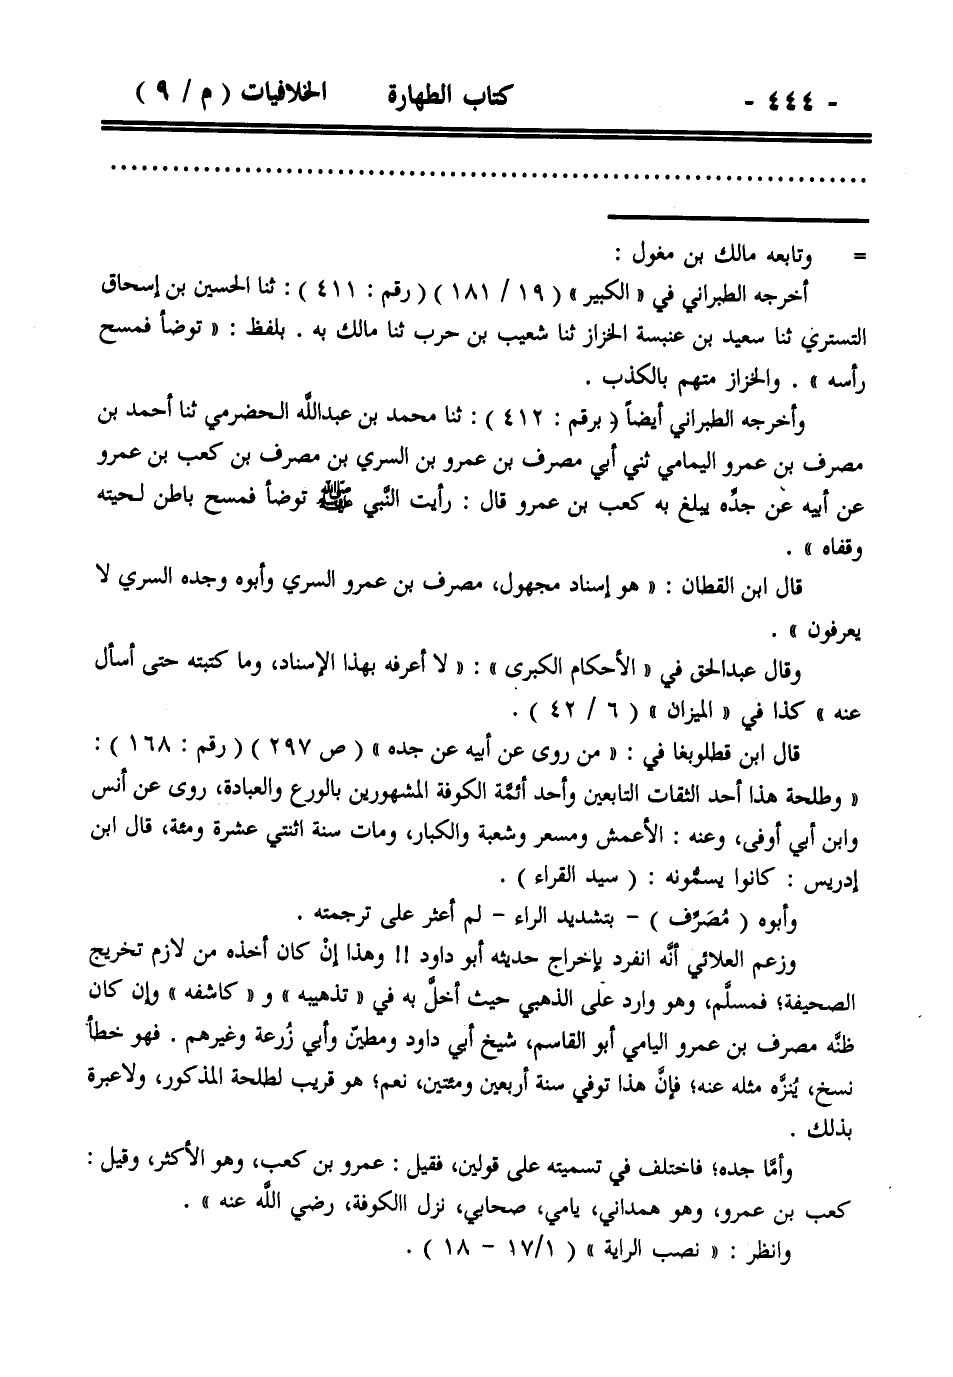 - ٤٤٤ - كتاب الطهارة الخلافيات ( م / ٩ )
= وتابعه مالك بن مغول :
أخرجه الطبراني في « الكبير » ( ١٩ / ١٨١ ) ( رقم : ٤١١ ) : ثنا الحسين بن إسحاق
التستري ثنا سعيد بن عنبسة الخزاز ثنا شعيب بن حرب ثنا مالك به . بلفظ : « توضأ فمسح
رأسه » . والخزاز متهم بالكذب .
وأخرجه الطبراني أيضاً ( برقم : ٤١٢ ) : ثنا محمد بن عبدالله الحضرمي ثنا أحمد بن
مصرف بن عمرو اليمامي ثني أبي مصرف بن عمرو بن السري بن مصرف بن كعب بن عمرو
عن أبيه عن جدِّه يبلغ به كعب بن عمرو قال : رأيت النَّبي ﷺ توضأ فمسح باطن لحيته
وقفاه » .
قال ابن القطان : « هو إسناد مجهول، مصرف بن عمرو السري وأبوه وجده السري لا
يعرفون » .
وقال عبدالحق في « الأحكام الكبرى » : « لا أعرفه بهذا الإسناد، وما كتبته حتى أسأل
عنه » كذا في « الميزان » ( ٦ / ٤٢ ) .
قال ابن قطلوبغا في : « من روى عن أبيه عن جده » ( ص ٢٩٧ ) ( رقم : ١٦٨ ) :
« وطلحة هذا أحد الثقات التابعين وأحد أئمَّة الكوفة المشهورين بالورع والعبادة، روى عن أنس
وابن أبي أوفى، وعنه : الأعمش ومسعر وشعبة والكبار، ومات سنة اثنتي عشرة ومئة، قال ابن
إدريس : كانوا يسمُّونه : ( سيد القراء ) .
وأبوه ( مُصَرِّف ) - بتشديد الراء - لم أعثر على ترجمته .
وزعم العلائي أنَّه انفرد بإخراج حديثه أبو داود !! وهذا إنْ كان أخذه من لازم تخريج
الصحيفة؛ فمسلَّم، وهو وارد على الذهبي حيث أخلَّ به في « تذهيبه » و « كاشفه » وإن كان
ظنَّه مصرف بن عمرو اليامي أبو القاسم، شيخ أبي داود ومطيّن وأبي زُرعة وغيرهم . فهو خطأ
نسخ، يُنزَّه مثله عنه؛ فإنَّ هذا توفي سنة أربعين ومئتين، نعم؛ هو قريب لطلحة المذكور، ولاعبرة
بذلك .
وأمَّا جده؛ فاختلف في تسميته على قولين، فقيل : عمرو بن كعب، وهو الأكثر، وقيل :
كعب بن عمرو، وهو همداني، يامي، صحابي، نزل االكوفة، رضي اللَّه عنه » .
وانظر : « نصب الراية » ( ١/ ١٧ - ١٨ ) .